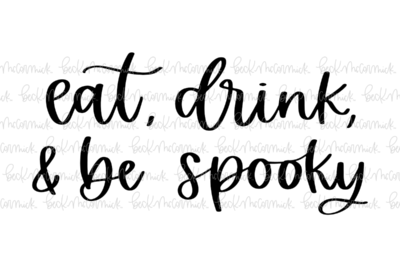 eat, drink,
& be spooky